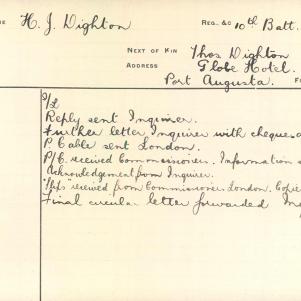 ME H. J. Dighton REG. &C 10th Batt.
NEXT OF KIN Thos Dighton
ADDRESS Globe Hotel.
Port Augusta. F
S/L
Reply sent Inquirer.
Further letter Inquirer with cheques
P. Cable sent London.
P/C. received Commissioner. Information
Acknowledgement from Inquirer.
"Slips" received from Commissioner London. Copie
Final circular letter forwarded In